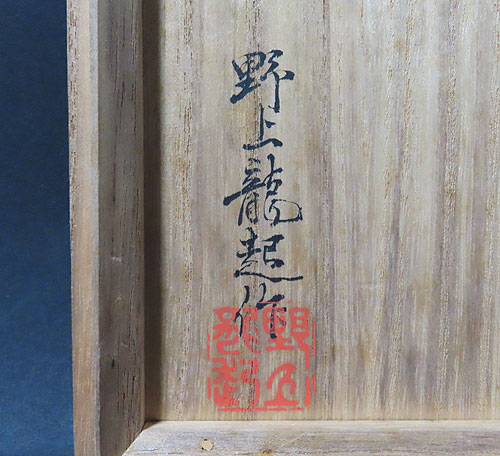 野上龍起作
野上龍起